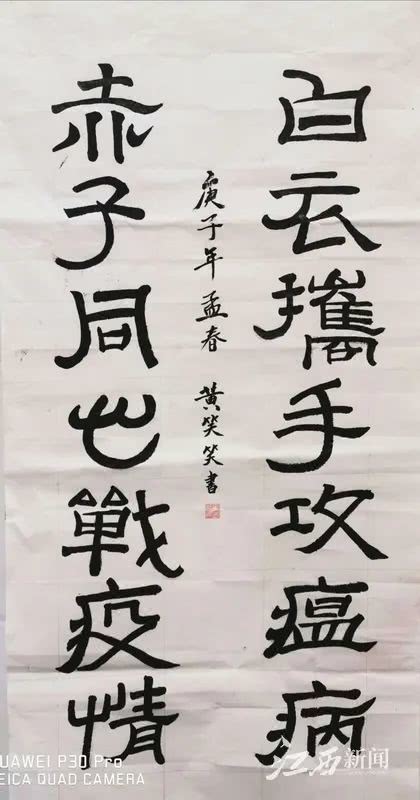 白云攜手攻瘟病
庚子年孟春 黄笑笑書
赤子同心戰疫情
HUAWEI P30 Pro
LEICA QUAD CAMERA
江西新闻